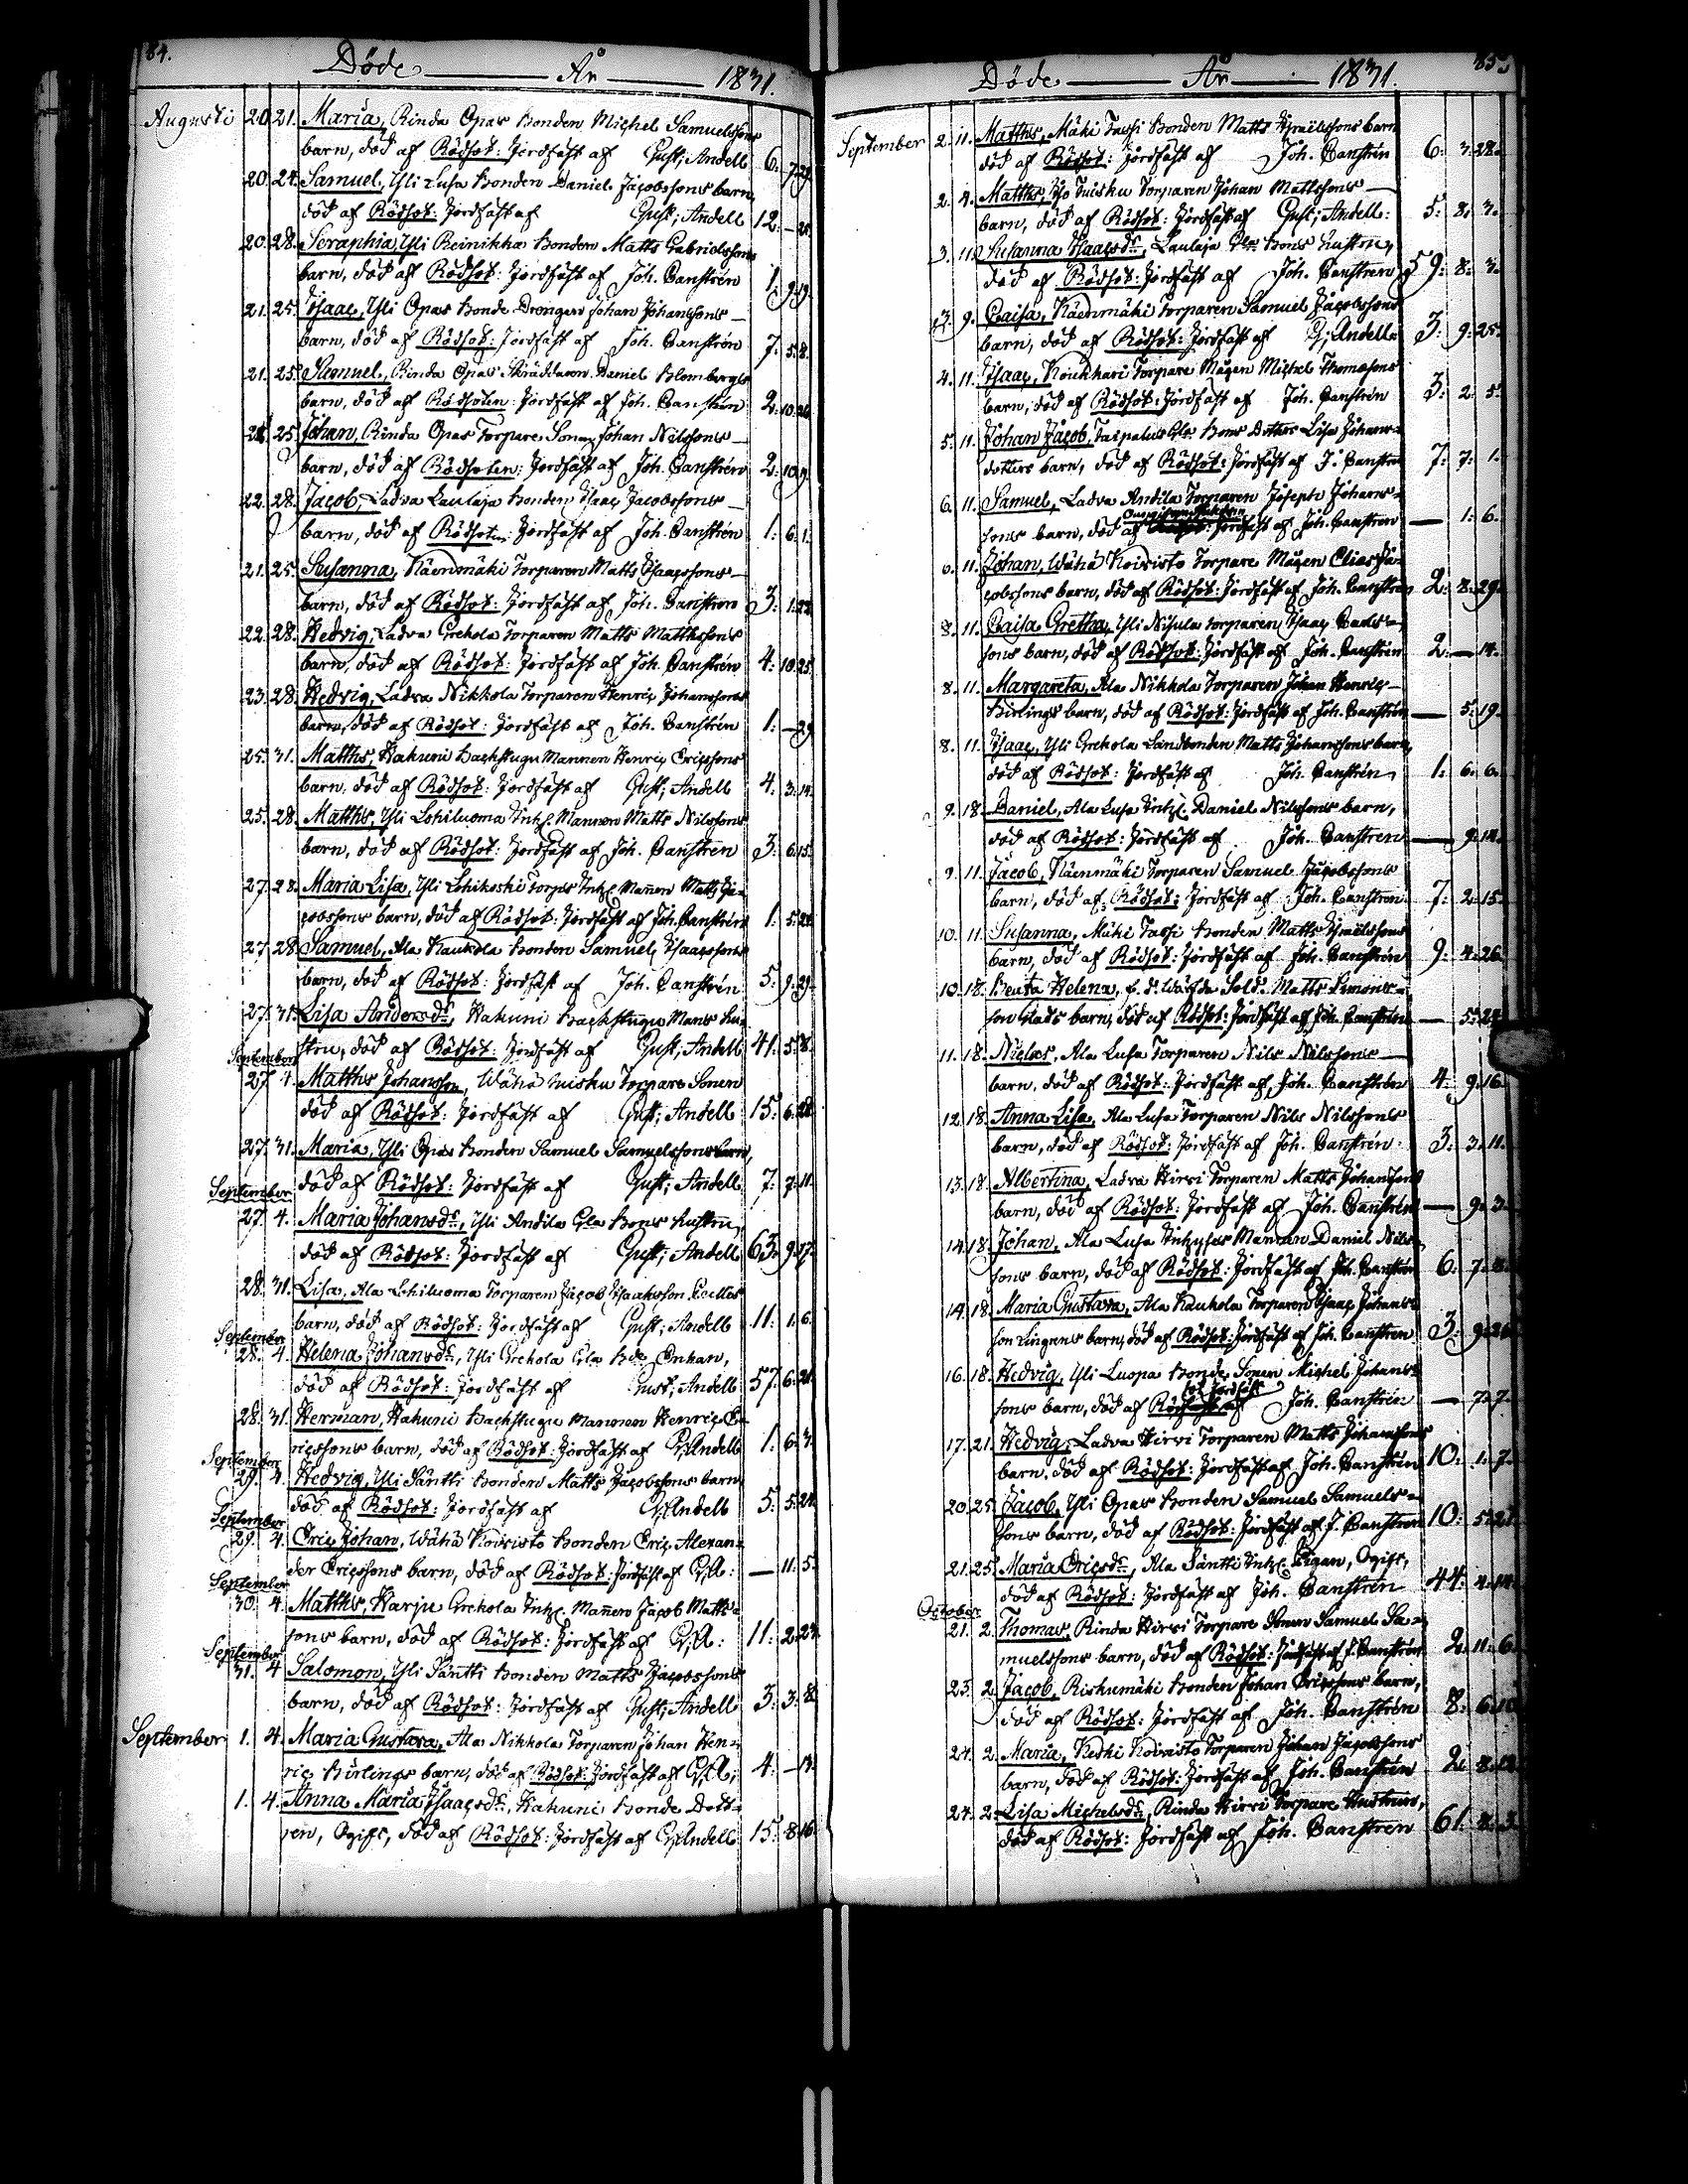 84.
Döde År 1831.
Augusti 20. 21. Maria, Rinda Opas Bonden Michel Samuelssons
barn, död af Rödsot: Jordfäst af Gust; Andell 6. 7. 29.
20. 24. Samuel, Yli Lusa Bonden Daniel Jacobssons barn,
död af Rödsot: Jordfäst af Gust; Andell 12. — 25.
20. 28. Seraphia, Yli Reinikka Bonden Matts Gabrielssons
barn, död af Rödsot: Jordfäst af Joh. Canstrén 1. 9. 19.
21. 25. Isaac, Yli Opas Bonde Drängen Johan Johanssons —
barn, död af Rödsot: Jordfäst af Joh. Canstrén 7. 5. 8.
21. 25. Samuel, Rinda Opas Skräddaren Daniel Blombergs
barn, död af Rödsoten: Jordfäst af Joh. Canstrén 2. 10. 26.
21. 25. Johan, Rinda Opas Torpare Sonen Johan Nilssons —
barn, död af Rödsoten: Jordfäst af Joh. Canstrén 2. 10. 9.
22. 28. Jacob, Ladva Laulaja Bonden Isaac Jacobssons —
barn, död af Rödsoten: Jordfäst af Joh. Canstrén 1. 6. 1.
21. 25. Susanna, Näenmäki Torparen Matts Isaacssons —
barn, död af Rödsot: Jordfäst af Joh. Canstrén 3. 1. 22.
22. 28. Hedvig, Ladva Grekola Torparen Matts Matthssons
barn, död af Rödsot: Jordfäst af Joh. Canstrén 4. 10. 25.
23. 28. Hedvig, Ladva Nikkola Torparen Henric Johanssons
barn, död af Rödsot: Jordfäst af Joh. Canstrén 1. — 29.
25. 31. Matths, Hakuni Backstugu Mannen Henric Ericssons
barn, död af Rödsot: Jordfäst af Gust; Andell 4. 3. 14.
25. 28. Matths, Yli Lohiluoma Inh. Mannen Matts Nilssons
barn, död af Rödsot: Jordfäst af Joh. Canstrén 3. 6. 15.
27. 28. Maria Lisa, Yli Lohikoski Torps Inh. Mannen Matts Ja-
cobssons barn, död af Rödsot: Jordfäst af Joh. Canstrén 1. 5. 28.
27. 28. Samuel, Ala Kaukola Bonden Samuel Isaacssons
barn, död af Rödsot: Jordfäst af Joh. Canstrén 5. 9. 29.
27. 31. Lisa Andersdr, Hakuni Backstugu Mans hu-
stru, död af Rödsot: Jordfäst af Gust; Andell 41. 5. 8.
September
27. 4. Matths Johansson, Wähä Tuisku Torpare Sonen
död af Rödsot: Jordfäst af Gust; Andell 15. 6. 28.
27. 31. Maria, Yli Opas Bonden Samuel Samuelssons barn,
död af Rödsot: Jordfäst af Gust; Andell 7. 7. 11.
September
27. 4. Maria Johansdr, Yli Andila Gla Bons hustru,
död af Rödsot: Jordfäst af Gust; Andell 63. 9. 17.
28. 31. Lisa, Ala Lohiluoma Torparen Jacob Isaaksson
barn, död af Rödsot: Jordfäst af Gust; Andell 11. 1. 6.
September
28. 4. Helena Johansdr, Yli Grekola Gla Bde Enkan,
död af Rödsot: Jordfäst af Gust; Andell 57. 6. 21.
28. 31. Herman, Hakuni Backstugu Mannen Henric E-
ricssons barn, död af Rödsot: Jordfäst af G; Andell 1. 6. 3.
September
29. 4. Hedvig, Yli Säntti Bonden Matts Jacobssons barn
död af Rödsot: Jordfäst af G; Andell 5. 5. 24.
September
29. 4. Eric Johan, Wähä Koivisto Bonden Eric Alexan-
der Ericssons barn, död af Rödsot: Jordfäst af G; A: — 11. 5.
September
30. 4. Matths, Harju Grekola Inh. Mannen Jacob Matts-
sons barn, död af Rödsot: Jordfäst af G; A: 11. 2. 23.
September
31. 4 Salomon, Yli Säntti Bonden Matts Jacobssons
barn, död af Rödsot: Jordfäst af Gust; Andell 3. 3. 8.
September 1. 4. Maria Gustava, Ala Nikkola Torparen Johan Hen-
ric Birlings barn, död af Rödsot: Jordfäst af G; A; 4. — 14.
1. 4. Anna Maria Isaacsdr, Hakuni Bonde Dott-
ren, Ogift, död af Rödsot: Jordfäst af G; Andell 15. 8. 16.
85.
Döde År 1831.
September 2. 11. Matths, Mäki Tassi Bonden Matts Israelssons barn
död af Rödsot: Jordfäst af Joh. Canstrén 6. 3. 28.
2. 4. Matths, Iso Tuisku Torparen Johan Mattssons —
barn, död af Rödsot: Jordfäst af Gust; Andell: 5. 8. 3.
3. 11. Susanna Isaacsdr, Laulaja Gla Bons hustru,
död af Rödsot: Jordfäst af Joh. Canstrén 59. 8. 3.
3. 9. Caisa, Näenmäki Torparen Samuel Jacobssons
barn, död af Rödsot: Jordfäst af G; Andell: 3. 9. 25.
4. 11. Isaac, Koukkari Torpare Mågen Michel Thomassons
barn, död af Rödsot: Jordfäst af Joh. Canstrén 3. 2. 5.
5. 11. Johan Jacob, Taipalus Gla Bons Dotter Lisa Johans-
dotters barn, död af Rödsot: Jordfäst af J. Canstrén 7. 7. 1.
6. 11. Samuel, Ladva Andila Torparen Joseph Johans-
sons barn, död af Jordfäst af Joh. Canstrén — 1. 6.
6. 11. Johan, Wähä Koivisto Torpare Mågen Elias Ja-
cobssons barn, död af Rödsot: Jordfäst af Joh. Canstrén 2. 8. 29.
8. 11. Caisa Gretha, Yli Nisula Torparen Isaac Carls-
sons barn, död af Rödsot: Jordfäst af Joh. Canstrén 2. — 14.
8. 11. Margareta, Ala Nikkola Torparen Johan Henric
Birlings barn, död af Rödsot: Jordfäst af Joh. Canstrén — 5. 19.
8. 11. Isaac, Yli Grekola Landbonden Matts Johanssons barn,
död af Rödsot: Jordfäst af Joh. Canstrén 1. 6. 6.
9. 18. Daniel, Ala Lusa Inh. Daniel Nilssons barn,
död af Rödsot: Jordfäst af Joh. Canstrén — 9. 14.
9. 11. Jacob, Näenmäki Torparen Samuel Jacobssons
barn, död af Rödsot: Jordfäst af Joh. Canstrén 7. 2. 15.
10. 11. Susanna, Mäki Tassi Bonden Matts Israelssons
barn, död af Rödsot: Jordfäst af Joh. Canstrén 9. 4. 26.
10. 18. Beata Helena, f. d. Sold. Matts Simons-
son Glads barn, död af Rödsot: Jordfäst af Joh. Canstrén — 5. 24.
11. 18. Niclas, Ala Lusa Torparen Nils Nilssons —
barn, död af Rödsot: Jordfäst af Joh. Canstrén 4. 9. 16.
12. 18. Anna Lisa, Ala Lusa Torparen Nils Nilssons
barn, död af Rödsot: Jordfäst af Joh. Canstrén 3. 3. 11.
13. 18. Albertina, Ladva Hirvi Torparen Matts Johanssons
barn, död af Rödsot: Jordfäst af Joh. Canstrén — 9. 3.
14. 18. Johan, Ala Lusa Inhyses Mannen Daniel Nils-
sons barn, död af Rödsot: Jordfäst af Joh. Canstrén 6. 7. 8.
14. 18. Maria Gustava, Ala Kaukola Torparen Isaac Johans-
son barn, död af Rödsot: Jordfäst af Joh. Canstrén 3. 9.
16. 18. Hedvig, Yli Luopa Bonde Sonen Michel Johans-
sons barn, död af Rödsot Jordfäst af Joh. Canstrén — 7. 7.
17. 21. Hedvig, Ladva Hirvi Torparen Matts Johanssons
barn, död af Rödsot: Jordfäst af Joh. Canstrén 10. 1. 7.
20. 25. Jacob, Yli Opas Bonden Samuel Samuels-
sons barn, död af Rödsot: Jordfäst af J. Canstrén 10. 5. 21.
21. 25. Maria Ericsdr, Ala Säntti Inh. Pigan, Ogift,
död af Rödsot: Jordfäst af Joh. Canstrén 44. 4. 14.
October
21. 2. Thomas, Rinda Hirvi Torpare Sonen Samuel Sa-
muelssons barn, död af Rödsot: Jordfäst af J. Canstrén 2. 11. 6.
23. 2. Jacob, Riskumäki Bonden Johan Ericssons barn,
död af Rödsot: Jordfäst af Joh. Canstrén 8. 6. 10.
24. 2. Maria, Keski Koivisto Torparen Johan Jacobssons
barn, död af Rödsot: Jordfäst af Joh. Canstrén 2. 8.
24. 2. Lisa Michelsdr, Rinda Hirvi Torpare Hustrun,
död af Rödsot: Jordfäst af Joh. Canstrén 61. 8. 3.